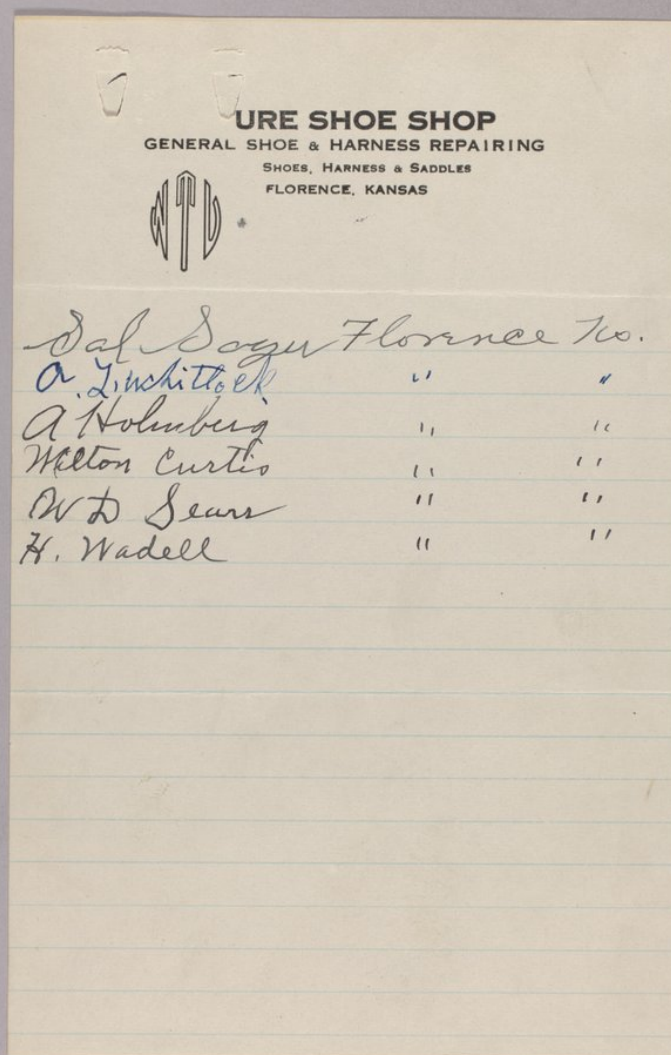 URE SHOE SHOP
GENERAL SHOE & HARNESS REPAIRING
SHOES, HARNESS & SADDLES
FLORENCE, KANSAS
WTU
Florence Ks.
A. " "
A Holmberg " "
Wilton Curtis " "
W D Sears " "
H. Wadell " "